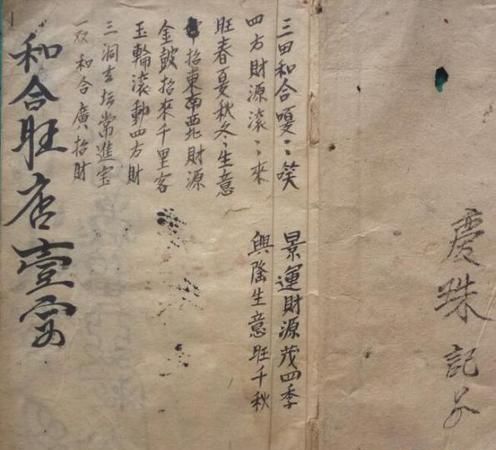 慶珠記
三田和合嘎〻笑
景運財源茂四季
四方財源滚〻來
興隆生意旺千秋
旺春夏秋冬生意
招東南西北財源
金鼓招來千里客
玉輪滚動四方財
三洞玄坛常進宝
一双和合廣招財
和合旺店壹